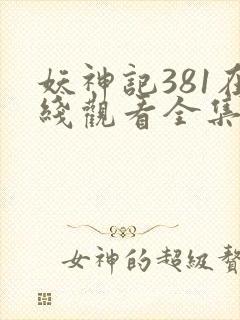 妖神記381在
綫觀看全集
女神的超級贅